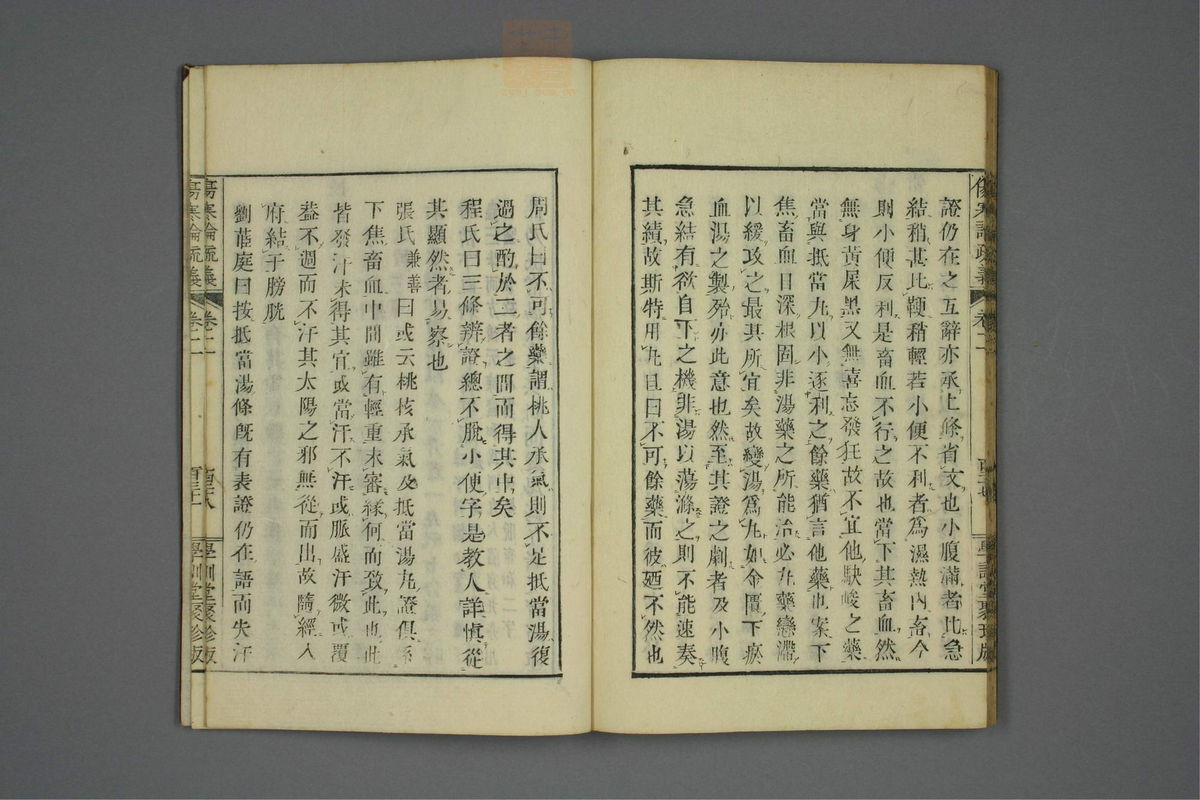 證仍在之互辭亦承上條省文也小腹滿者比急
結稍甚比鞕稍輕若小便不利者爲濕熱內畜今
則小便反利是畜血不行之故也當下其畜血然
無身黃屎黑又無喜忘發狂故不宜他駃峻之藥
當與抵當丸以小逐利之餘藥猶言他藥也案下
焦畜血日深根固非湯藥之所能治必丸藥戀滯
以緩攻之最其所宜矣故變湯爲丸如金匱下瘀
血湯之製殆亦此意也然至其證之劇者及小腹
急結有欲自下之機非湯以蕩滌之則不能速奏
其績故斯特用丸且曰不可餘藥而彼廼不然也
周氏曰不可餘藥謂桃人承氣則不足抵當湯復
過之酌於二者之間而得其中矣
程氏曰三條辨證總不脫小便字是教人詳愼從
其顯然者易察也
張氏兼善曰或云桃核承氣及抵當湯丸證俱系
下焦畜血中間雖有輕重未審緣何而致此也此
皆發汁未得其宜或當汗不汗或脈盛汗微或覆
葢不週而不汗其太陽之邪無從而出故隨經入
府結于膀胱
劉茝庭曰按抵當湯條旣有表證仍在語而失汗
傷寒論疏義
卷二
學訓堂聚珍版